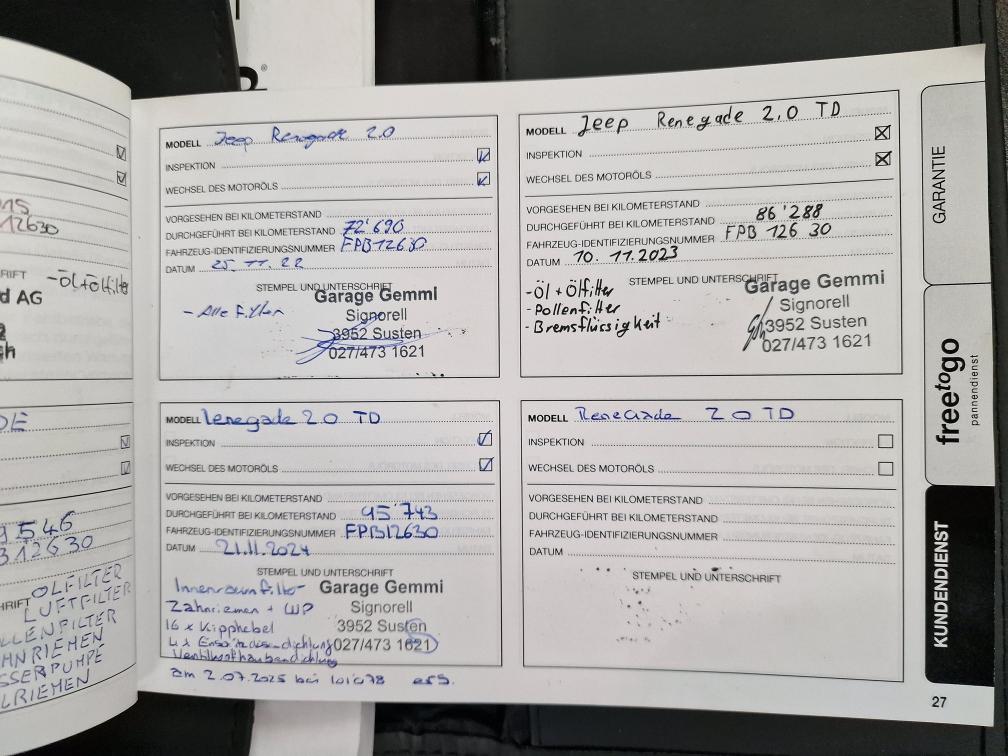 MODELL Jeep Renegade 2.0
INSPEKTION
WECHSEL DES MOTORÖLS
VORGESEHEN BEI KILOMETERSTAND
DURCHGEFÜHRT BEI KILOMETERSTAND 72'690
FAHRZEUG-IDENTIFIZIERUNGSNUMMER FPB12630
DATUM 25.11.22
STEMPEL UND UNTERSCHRIFT
- Alle Filter
Garage Gemmi
Signorell
3952 Susten
027/473 1621
MODELL Jeep Renegade 2.0 TD
INSPEKTION
WECHSEL DES MOTORÖLS
VORGESEHEN BEI KILOMETERSTAND
DURCHGEFÜHRT BEI KILOMETERSTAND 86'288
FAHRZEUG-IDENTIFIZIERUNGSNUMMER FPB 126 30
DATUM 10.11.2023
STEMPEL UND UNTERSCHRIFT
- Öl + Ölfilter
- Pollenfilter
- Bremsflüssigkeit
Garage Gemmi
Signorell
3952 Susten
027/473 1621
MODELL Renegade 2.0 TD
INSPEKTION
WECHSEL DES MOTORÖLS
VORGESEHEN BEI KILOMETERSTAND
DURCHGEFÜHRT BEI KILOMETERSTAND 95'743
FAHRZEUG-IDENTIFIZIERUNGSNUMMER FPB12630
DATUM 21.11.2024
STEMPEL UND UNTERSCHRIFT
Innenraumfilter
Zahnriemen + WP
16 x Kipphebel
4x
Ventilkopfhaubendichtung
am 2.07.2025 bei 101'078 ers.
Garage Gemmi
Signorell
3952 Susten
027/473 1621
MODELL Renegade 2.0 TD
INSPEKTION
WECHSEL DES MOTORÖLS
VORGESEHEN BEI KILOMETERSTAND
DURCHGEFÜHRT BEI KILOMETERSTAND
FAHRZEUG-IDENTIFIZIERUNGSNUMMER
DATUM
STEMPEL UND UNTERSCHRIFT
12630
RIFT - Öl + Ölfilter
d AG
DE
9546
B12630
HRIFT ÖLFILTER
LUFTFILTER
LLENFILTER
HNRIEMEN
SSERPUMPE
LRIEMEN
GARANTIE
freetogo
pannendienst
KUNDENDIENST
27